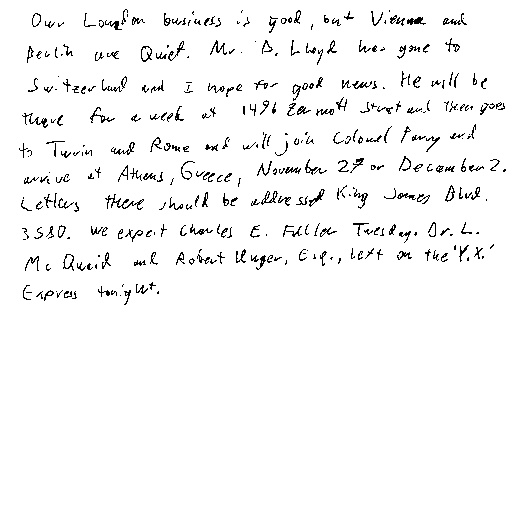 Our London business is good, but Vienna and
Berlin are Quiet. Mr. D. Lloyd has gone to
Switzerland and I hope for good news. He will be
there for a week at 1496 Zermott Street and then goes
to Turin and Rome and will join Colonel Parry and
arrive at Athens, Greece, November 27 or December 2.
Letters there should be addressed King James Blvd.
3580. We expect Charles E. Fuller Tuesday. Dr. L.
McQuaid and Robert Unger, Esq., left on the 'Y.X.'
Express tonight.